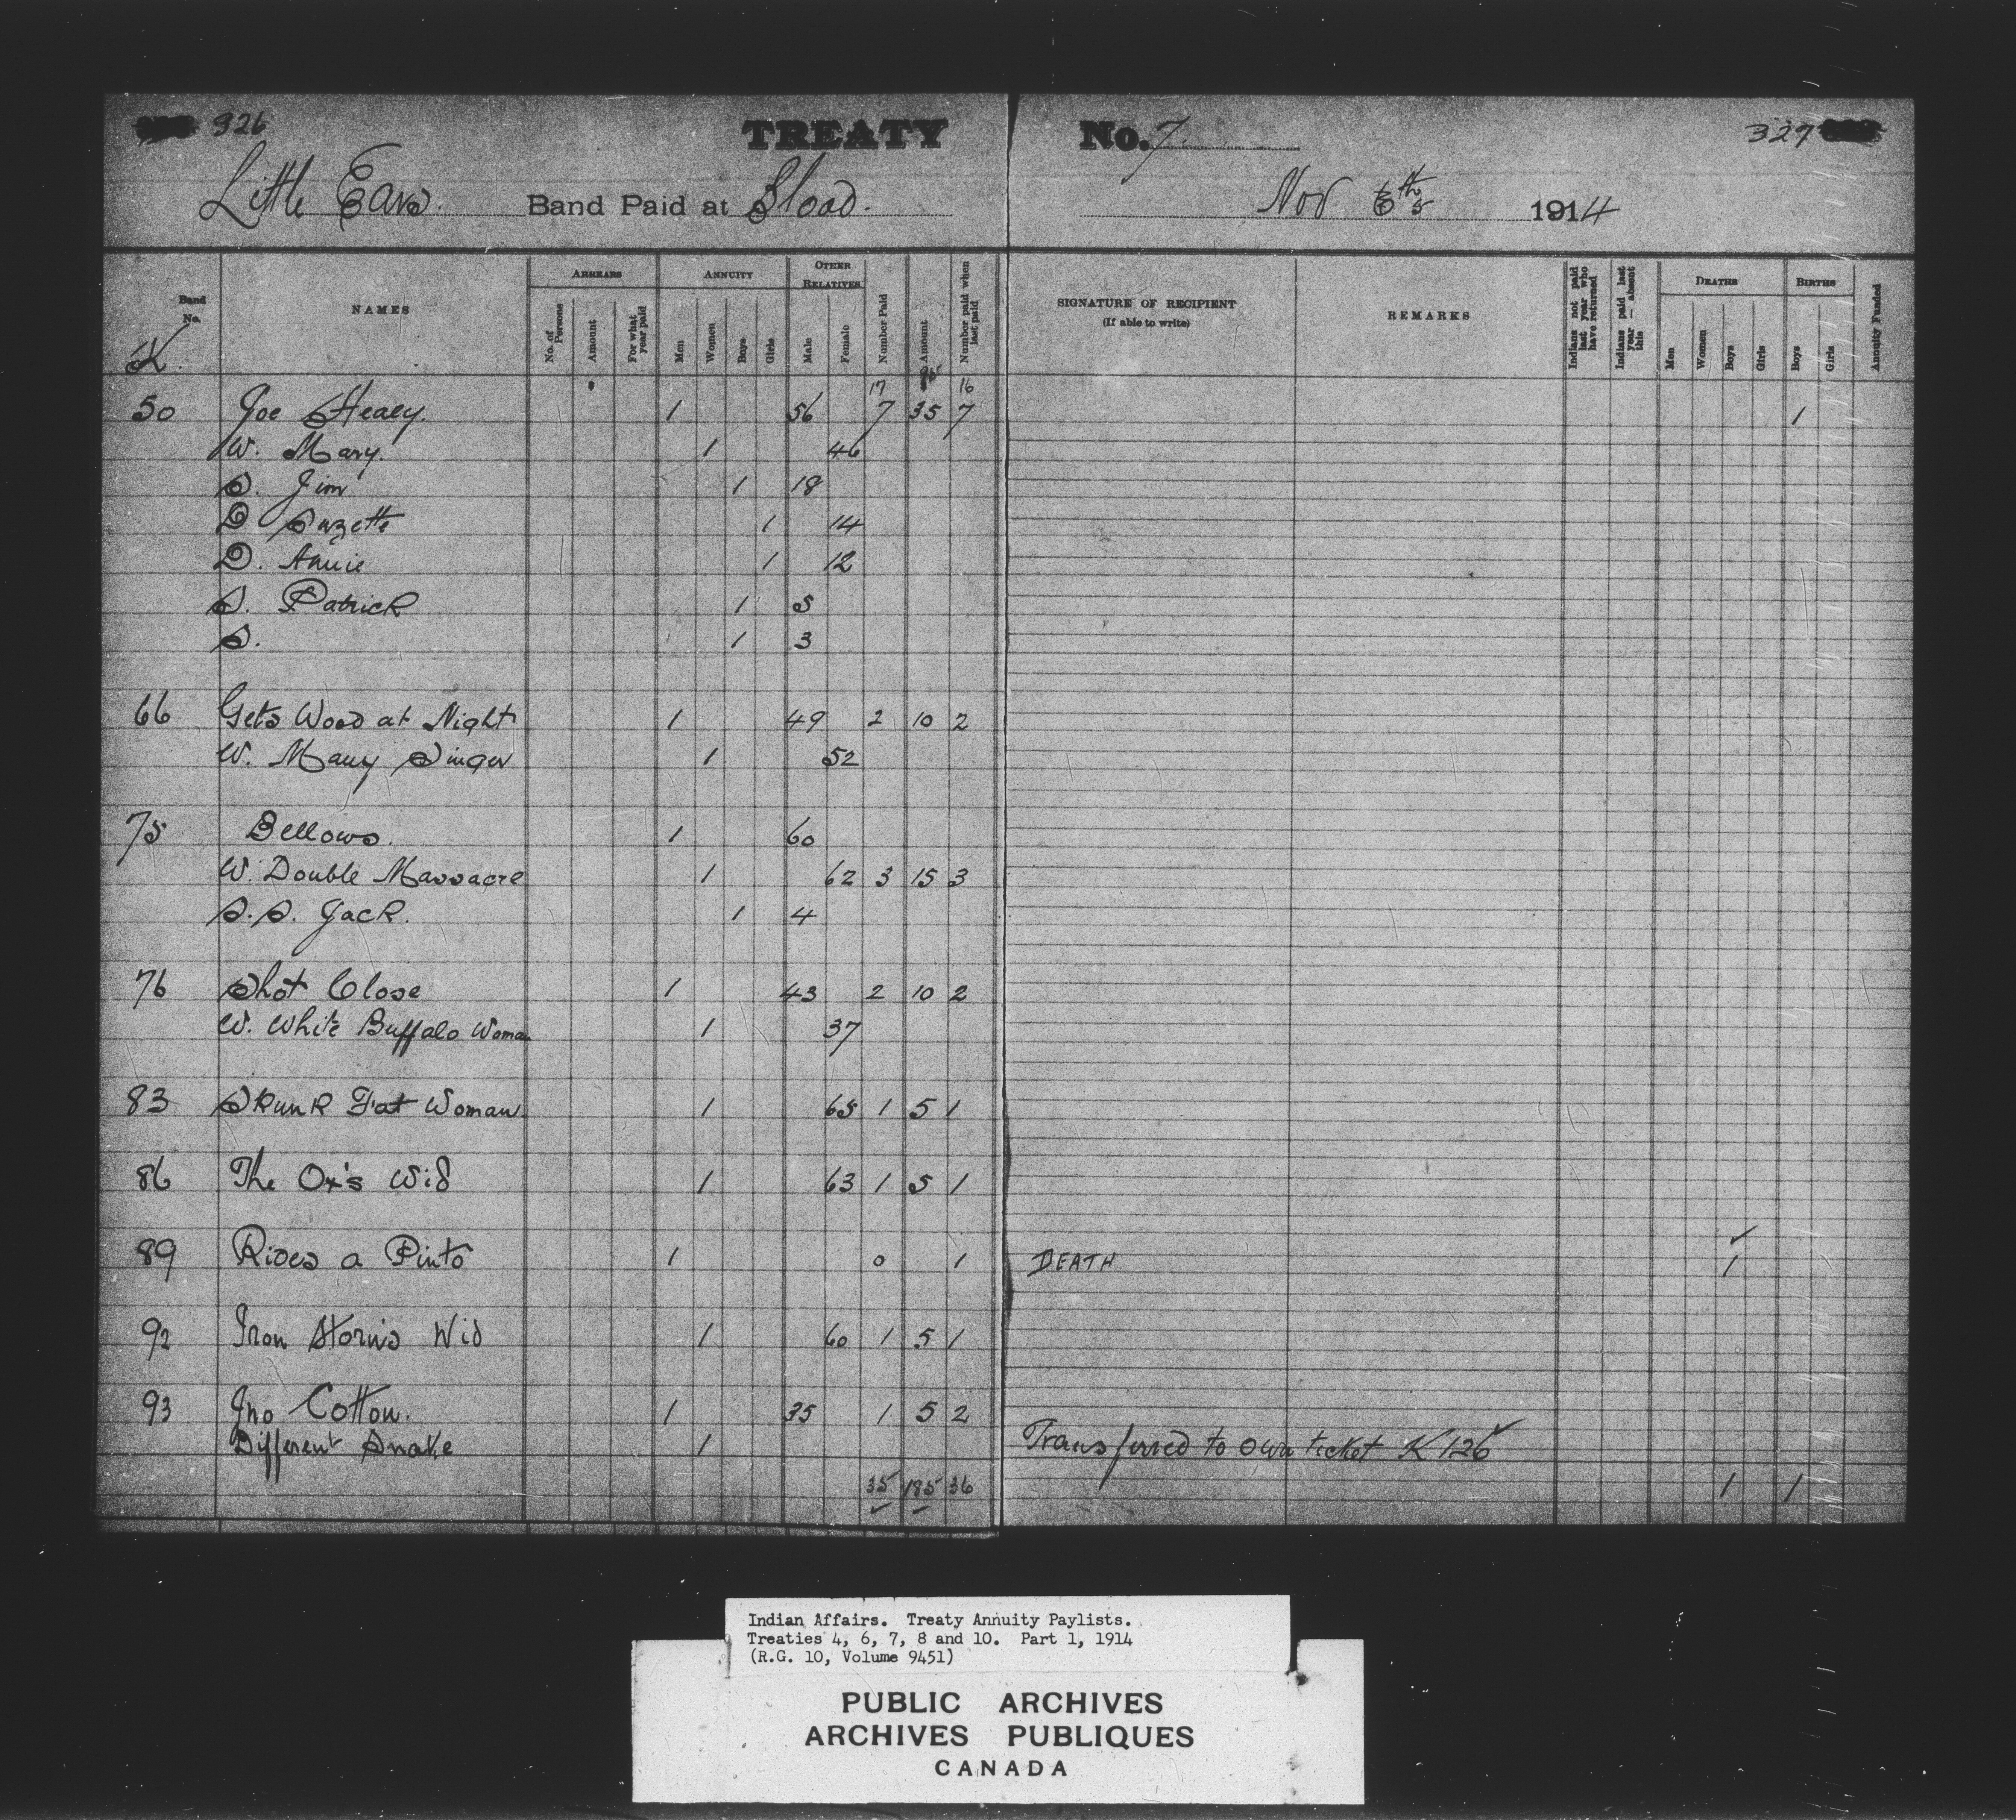 326
TREATY No. 7
327
Little Ears. Band Paid at Blood. Nov 6th 5 1914
Band No. NAMES ARREARS ANNUITY OTHER RELATIVES Number Paid Amount Number paid when last paid SIGNATURE OF RECIPIENT (If able to write) REMARKS Indians not paid last year who have returned Indians paid last year — absent this DEATHS BIRTHS Annuity Funded
No. of Persons Amount For what year paid Men Women Boys Girls Male Female Men Women Boys Girls Boys Girls
K.
17 16
50 Joe Healy. 1 56 7 35 7 1
W. Mary. 1 46
S. Jim 1 18
D Suzette 1 14
D. Annie 1 12
S. Patrick 1 5
S. 1 3
66 Gets Wood at Night 1 49 2 10 2
W. Many Singer 1 52
75 Bellows. 1 60
W. Double Massacre 1 62 3 15 3
S.S. Jack. 1 4
76 Shot Close 1 43 2 10 2
W. White Buffalo Woman 1 37
83 Skunk Fat Woman 1 65 1 5 1
86 The Ox's Wid 1 63 1 5 1
89 Rides a Pinto 1 0 1 DEATH 1
92 Iron Horn's Wid 1 60 1 5 1
93 Jno Cotton. 1 35 1 5 2
Different Snake 1 Transferred to own ticket K 126
35 185 36 1 1
Indian Affairs. Treaty Annuity Paylists.
Treaties 4, 6, 7, 8 and 10. Part 1, 1914
(R.G. 10, Volume 9451)
PUBLIC ARCHIVES
ARCHIVES PUBLIQUES
CANADA